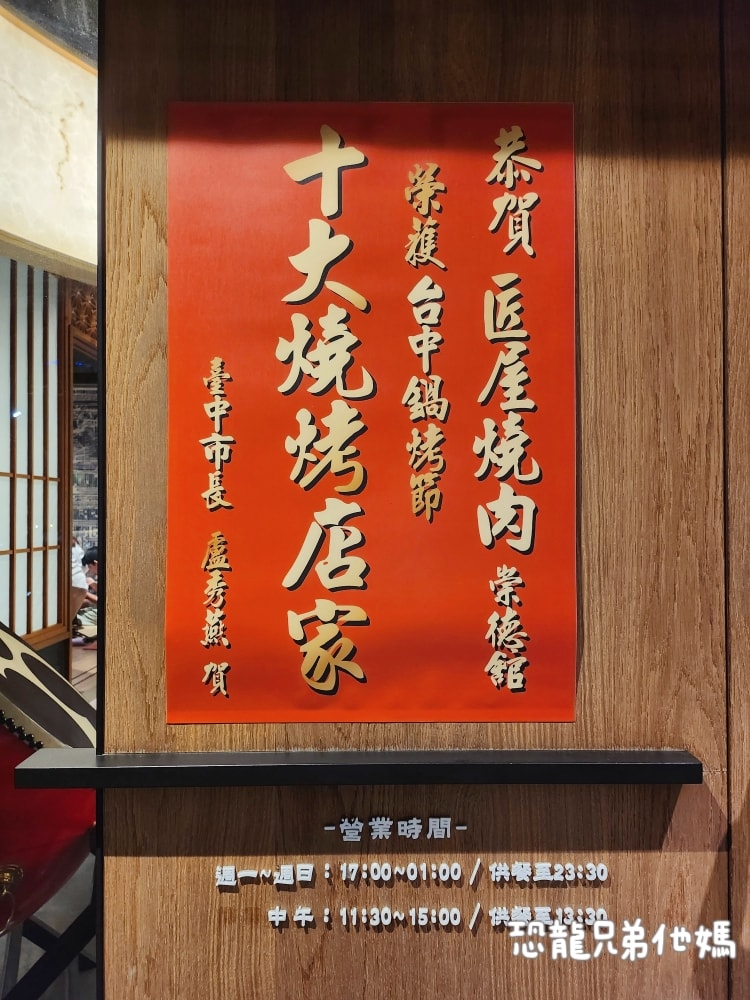 恭賀 匠屋燒肉 崇德館
榮獲台中鍋烤節
十大燒烤店家
臺中市長 盧秀燕 賀
-營業時間-
週一~週日：17:00~01:00 / 供餐至23:30
中午：11:30~15:00 / 供餐至13:30
恐龍兄弟他媽